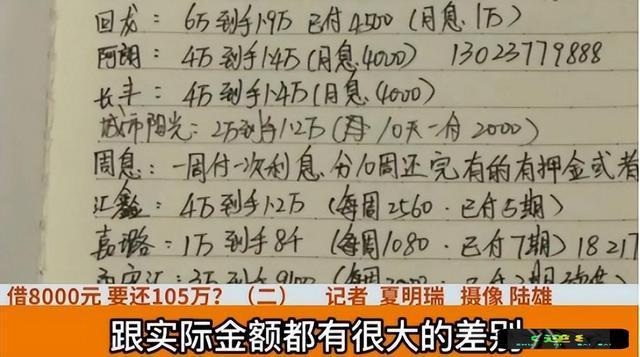 回龙: 6万到手1.9万 已付4500 (月息1万)
阿朗: 4万到手1.4万(月息4000) 13023779888
长丰: 4万到手1.4万(月息4000)
城市阳光: 2万到手1.2万(每10天一付2000)
周息: 一周付一次利息.分10周还完有的有押金或者
汇鑫: 4万到手1.2万 (每周2560.已付5期)
嘉璐: 1万到手8千 (每周1080.已付7期) 18217
3万到手9100
借8000元 要还105万?（二） 记者 夏明瑞 摄像 陆雄
跟实际金额都有很大的差别